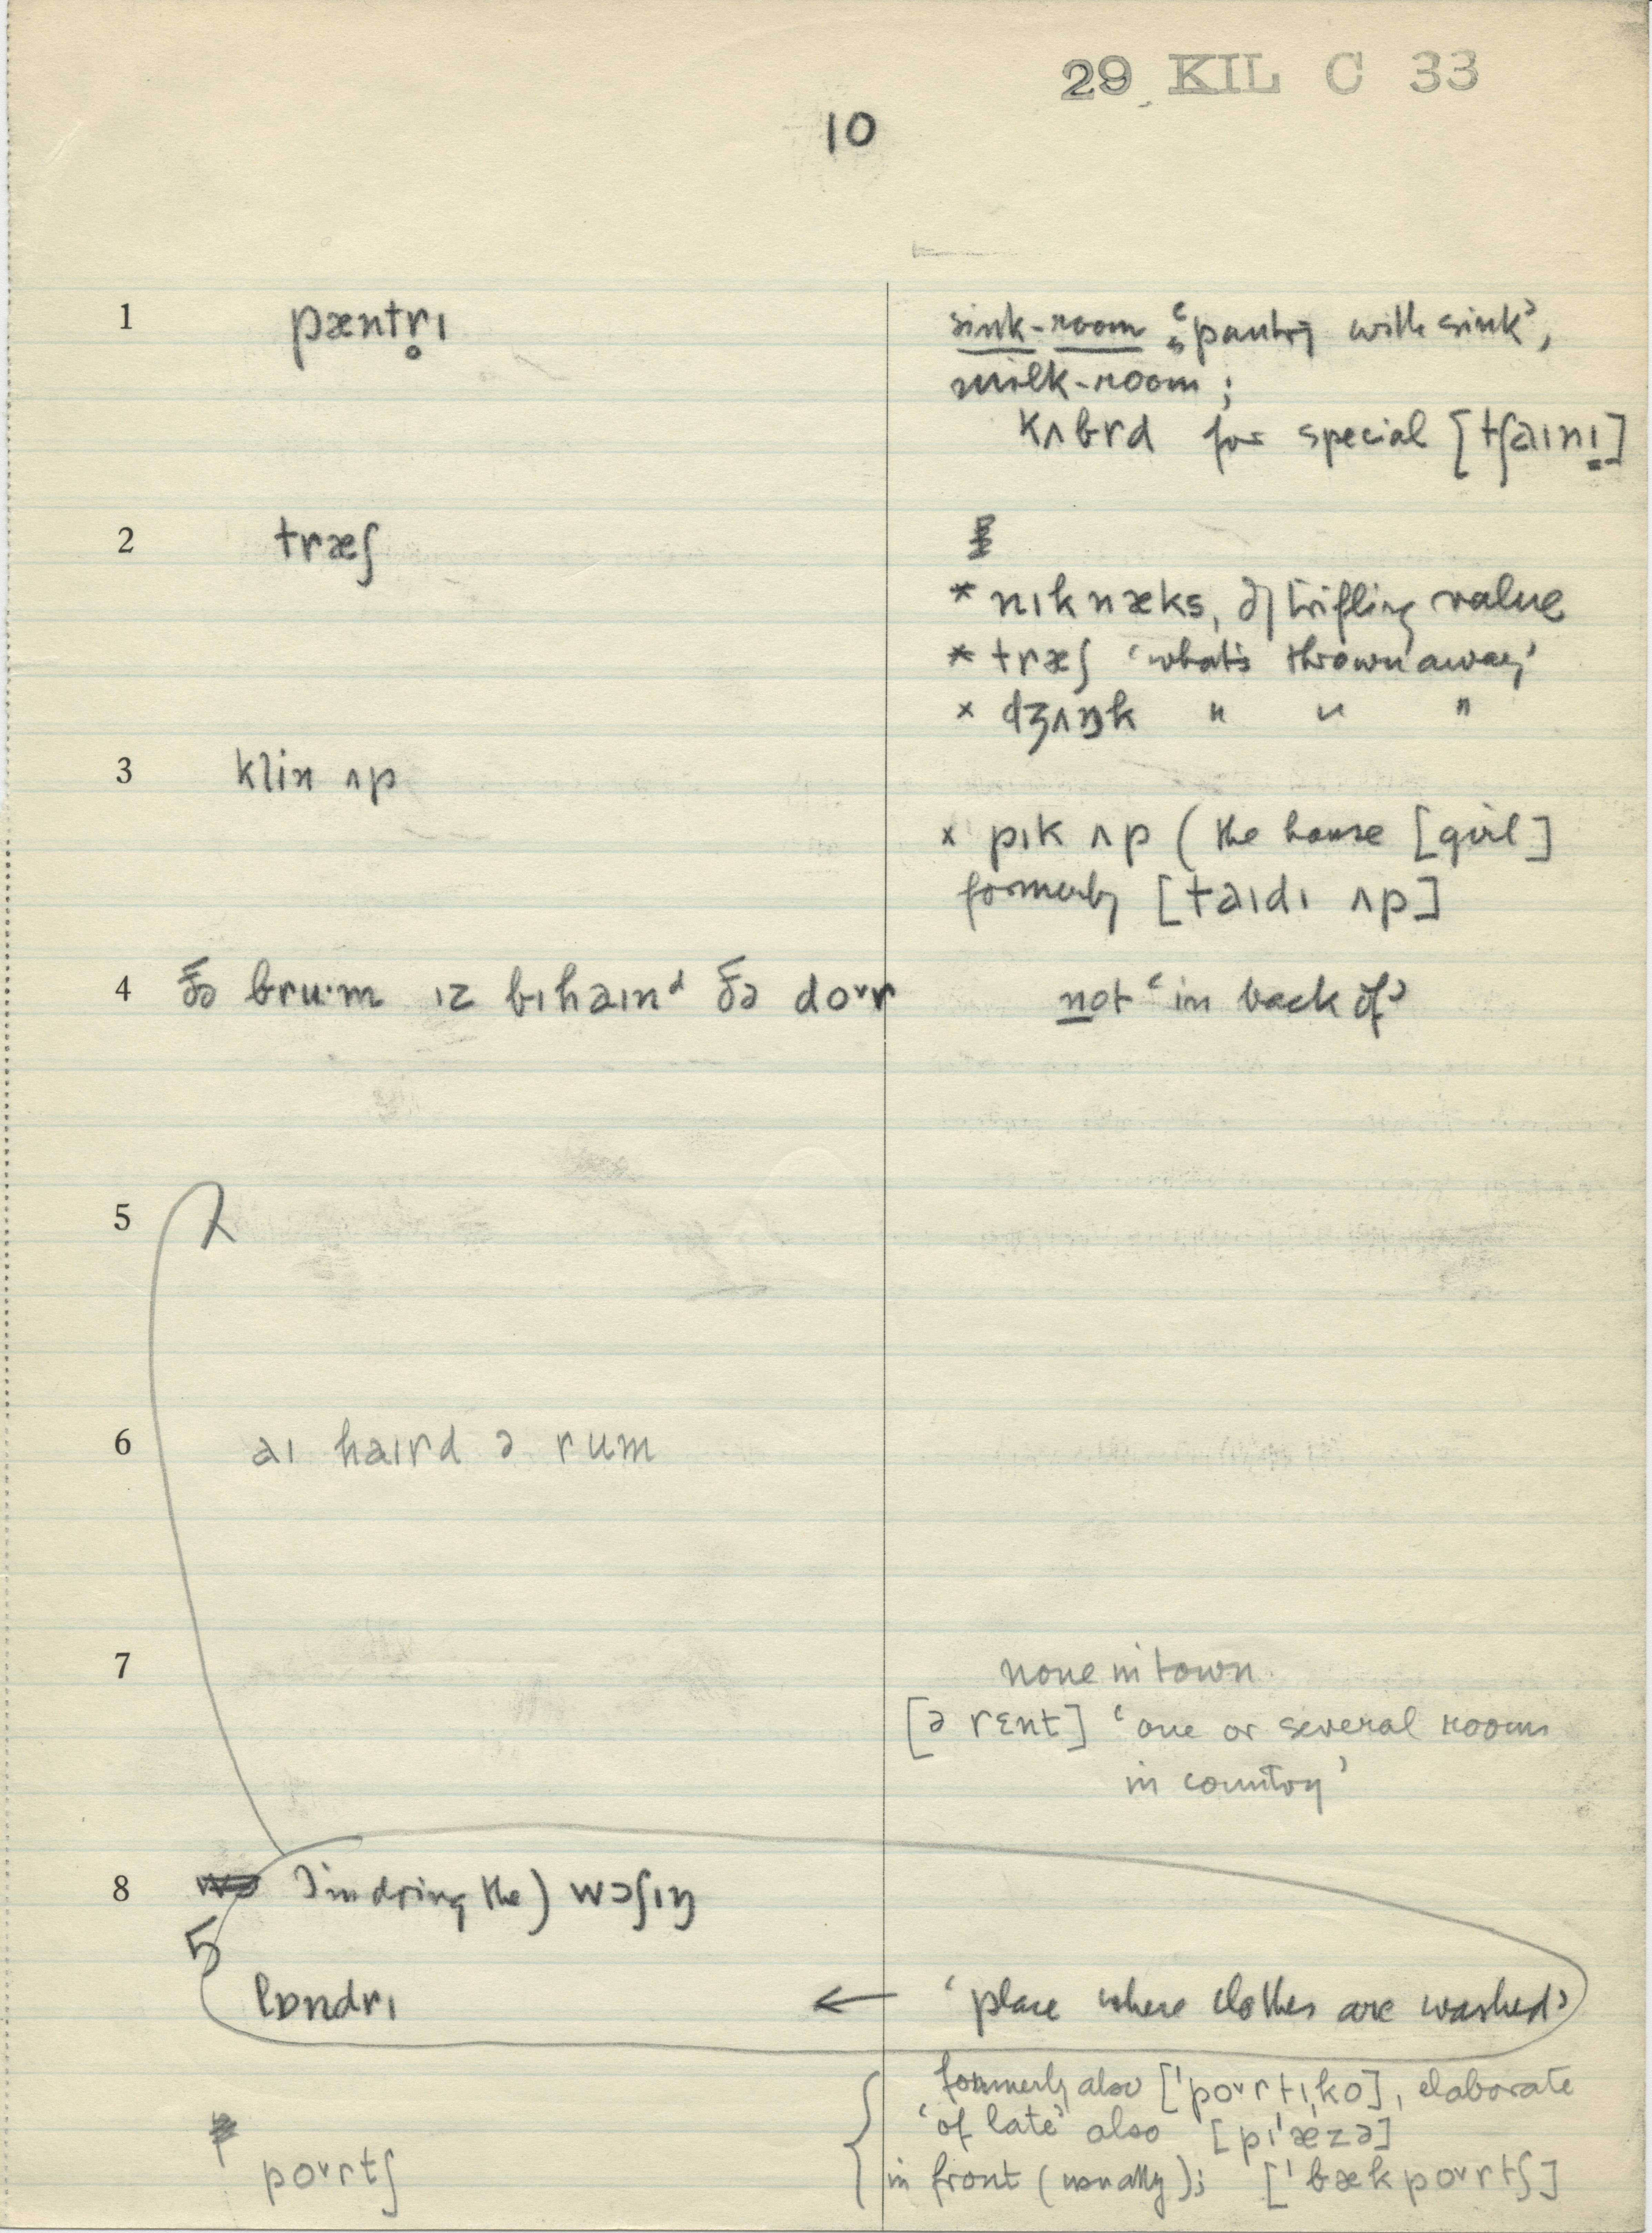 29 KIL C 33
10
1 pæntr̥ɪ
sink-room ‘pantry with sink’,
milk-room;
kʌbrd for special [tʃaɪnɪ]
2 træʃ
* nɪknæks, of trifling value
* træʃ ‘what's thrown away’
× dʒʌŋk " " "
3 klin ʌp
× pɪk ʌp (the house [girl]
formerly [taɪdɪ ʌp]
4 ðə bru·m ɪz bɪhaɪnᵈ ðə doᵛr not ‘in back of’
5
6 aɪ haɪrd ə rum
7 none in town.
[ə rɛnt] ‘one or several rooms
in country’
8 I'm doing the) wɔʃɪŋ
5
lɒndrɪ ← ‘place where clothes are washed’
formerly also [ˈpoᵛrtɪˌko], elaborate
‘of late’ also [pɪˈæzə]
poᵛrtʃ { in front (usually); [ˈbækpoᵛrtʃ]